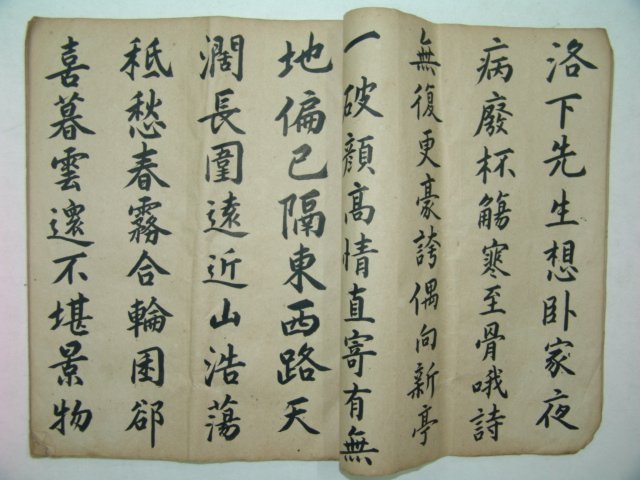 洛下先生想卧家夜
病廢杯觴寒至骨哦詩
無復更豪誇偶向新亭
一破顔髙情直寄有無
地偏已隔東西路天
濶長圍遠近山浩蕩
秪愁春霧合輪囷郤
喜暮雲還不堪景物